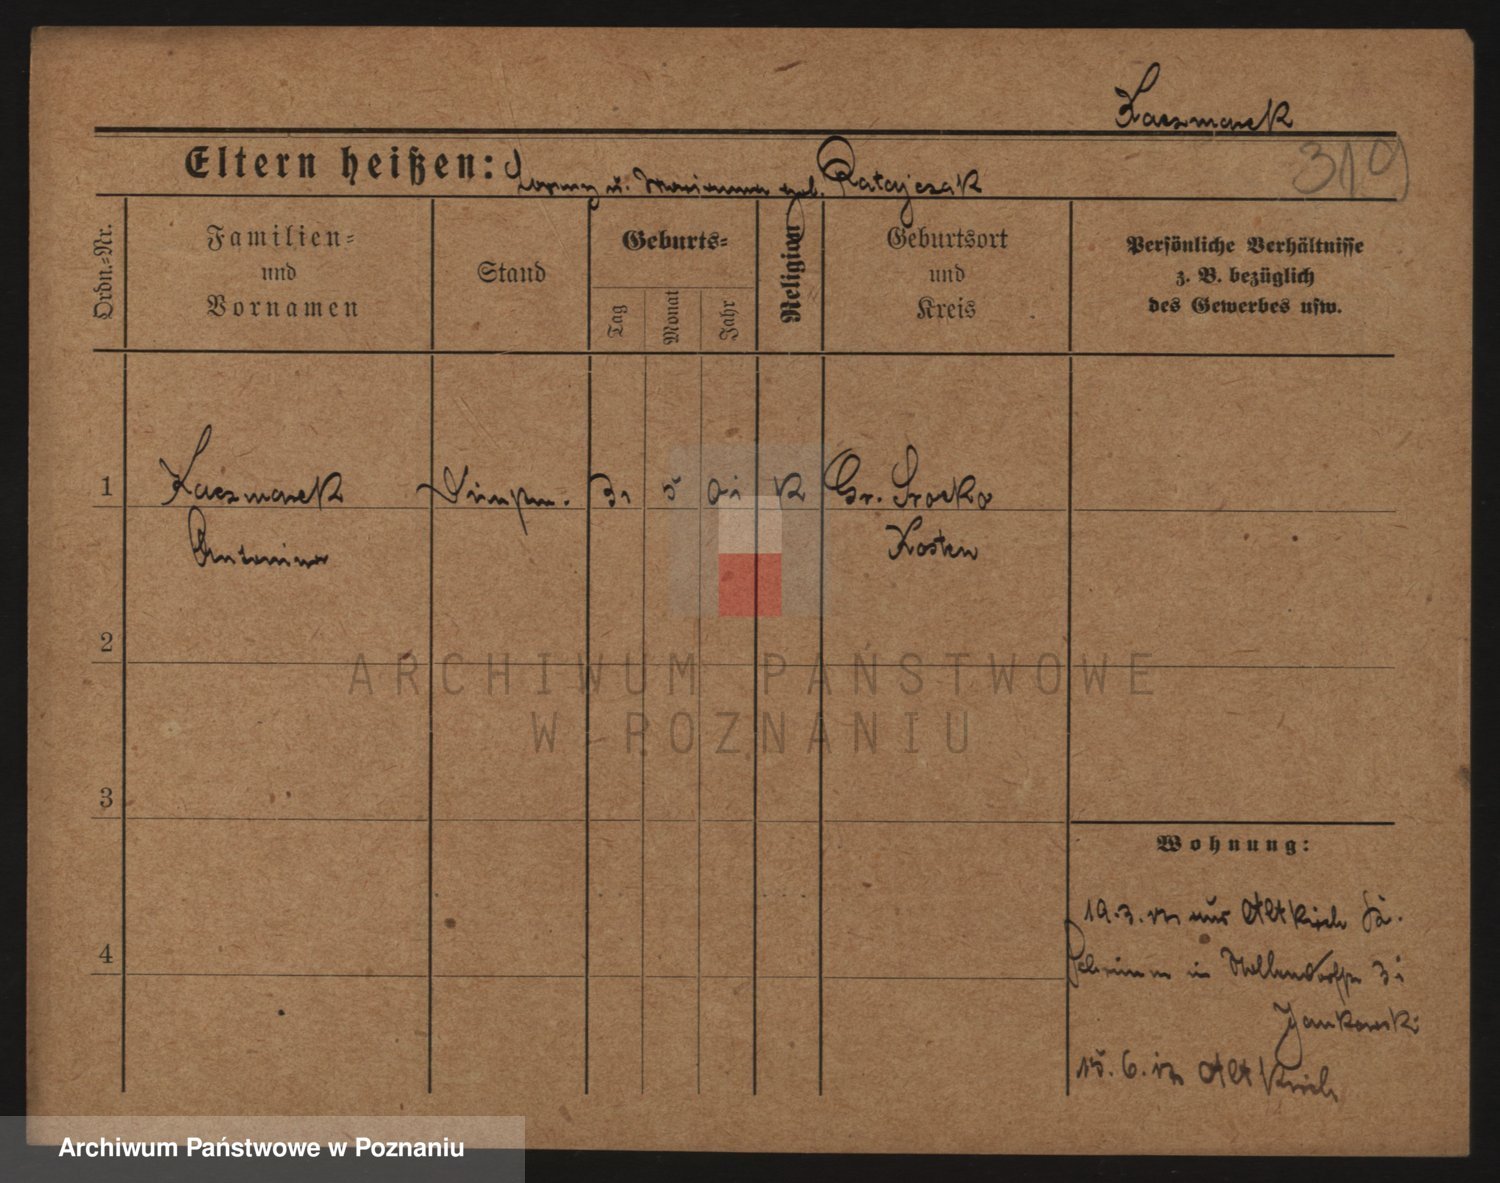 Kaczmarek
319
Eltern heißen: Lorenz u. Marianna geb. Ratajczak
Ordn.-Nr.
Familien-
und
Vornamen
Stand
Geburts-
Tag
Monat
Jahr
Religion
Geburtsort
und
Kreis
Persönliche Verhältnisse
z. B. bezüglich
des Gewerbes usw.
1 Kaczmarek 31 5 01 K Gr. Sroko
Antonina Kosten
2
3
4
Wohnung:
19.3. aus Altkirch
in 31
Jankowski
15.6. Altkirch
ARCHIWUM PAŃSTWOWE
W POZNANIU
Archiwum Państwowe w Poznaniu